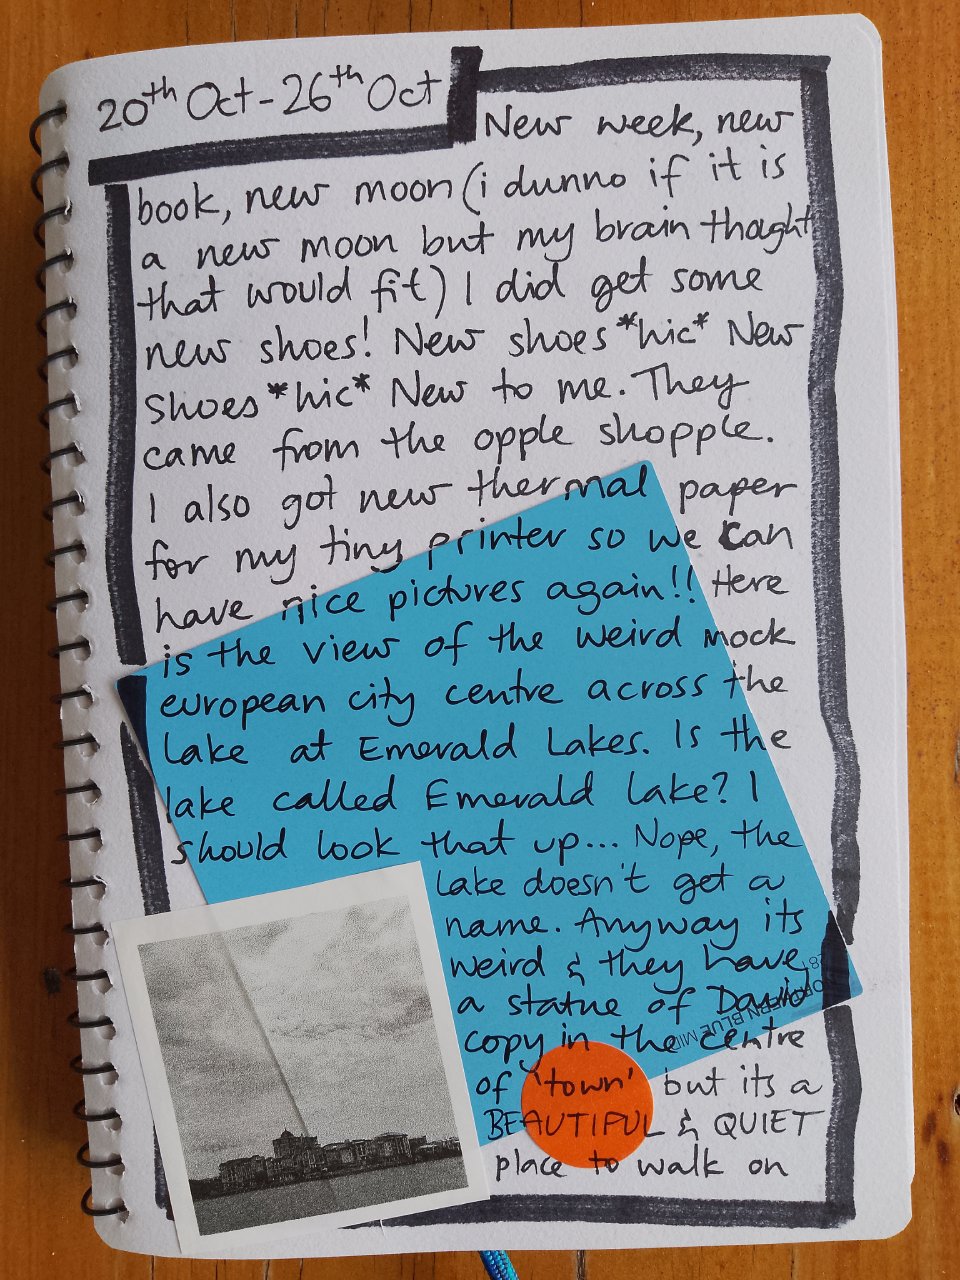 20th Oct - 26th Oct
New week, new
book, new moon (i dunno if it is
a new moon but my brain thoght
that would fit) I did get some
new shoes! New shoes *hic* New
Shoes *hic* New to me. They
came from the opple shopple.
I also got new thermal paper
for my tiny printer so we can
have nice pictures again!! Here
is the view of the weird mock
european city centre across the
lake at Emerald Lakes. Is the
lake called Emerald lake? I
should look that up... Nope, the
lake doesn't get a
name. Anyway its
weird & they have
a statue of David
copy in the centre
of 'town' but its a
BEAUTIFUL & QUIET
place to walk on